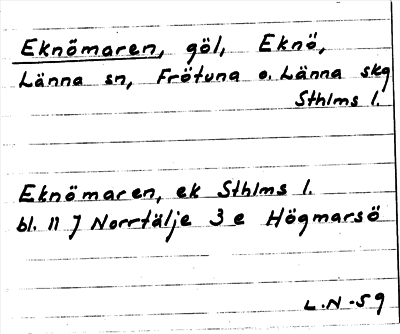 Eknömaren, göl, Eknö,
Länna sn, Frötuna o. Länna skg
Sthlms l.
Eknömaren, ek Sthlms l.
bl. 11 J Norrtälje 3 e Högmarsö
L.N -59